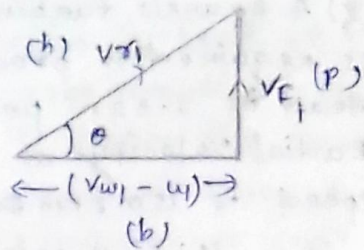 (h) Vr₁
VF₁ (P)
θ
← (Vw₁ - u₁) →
(b)